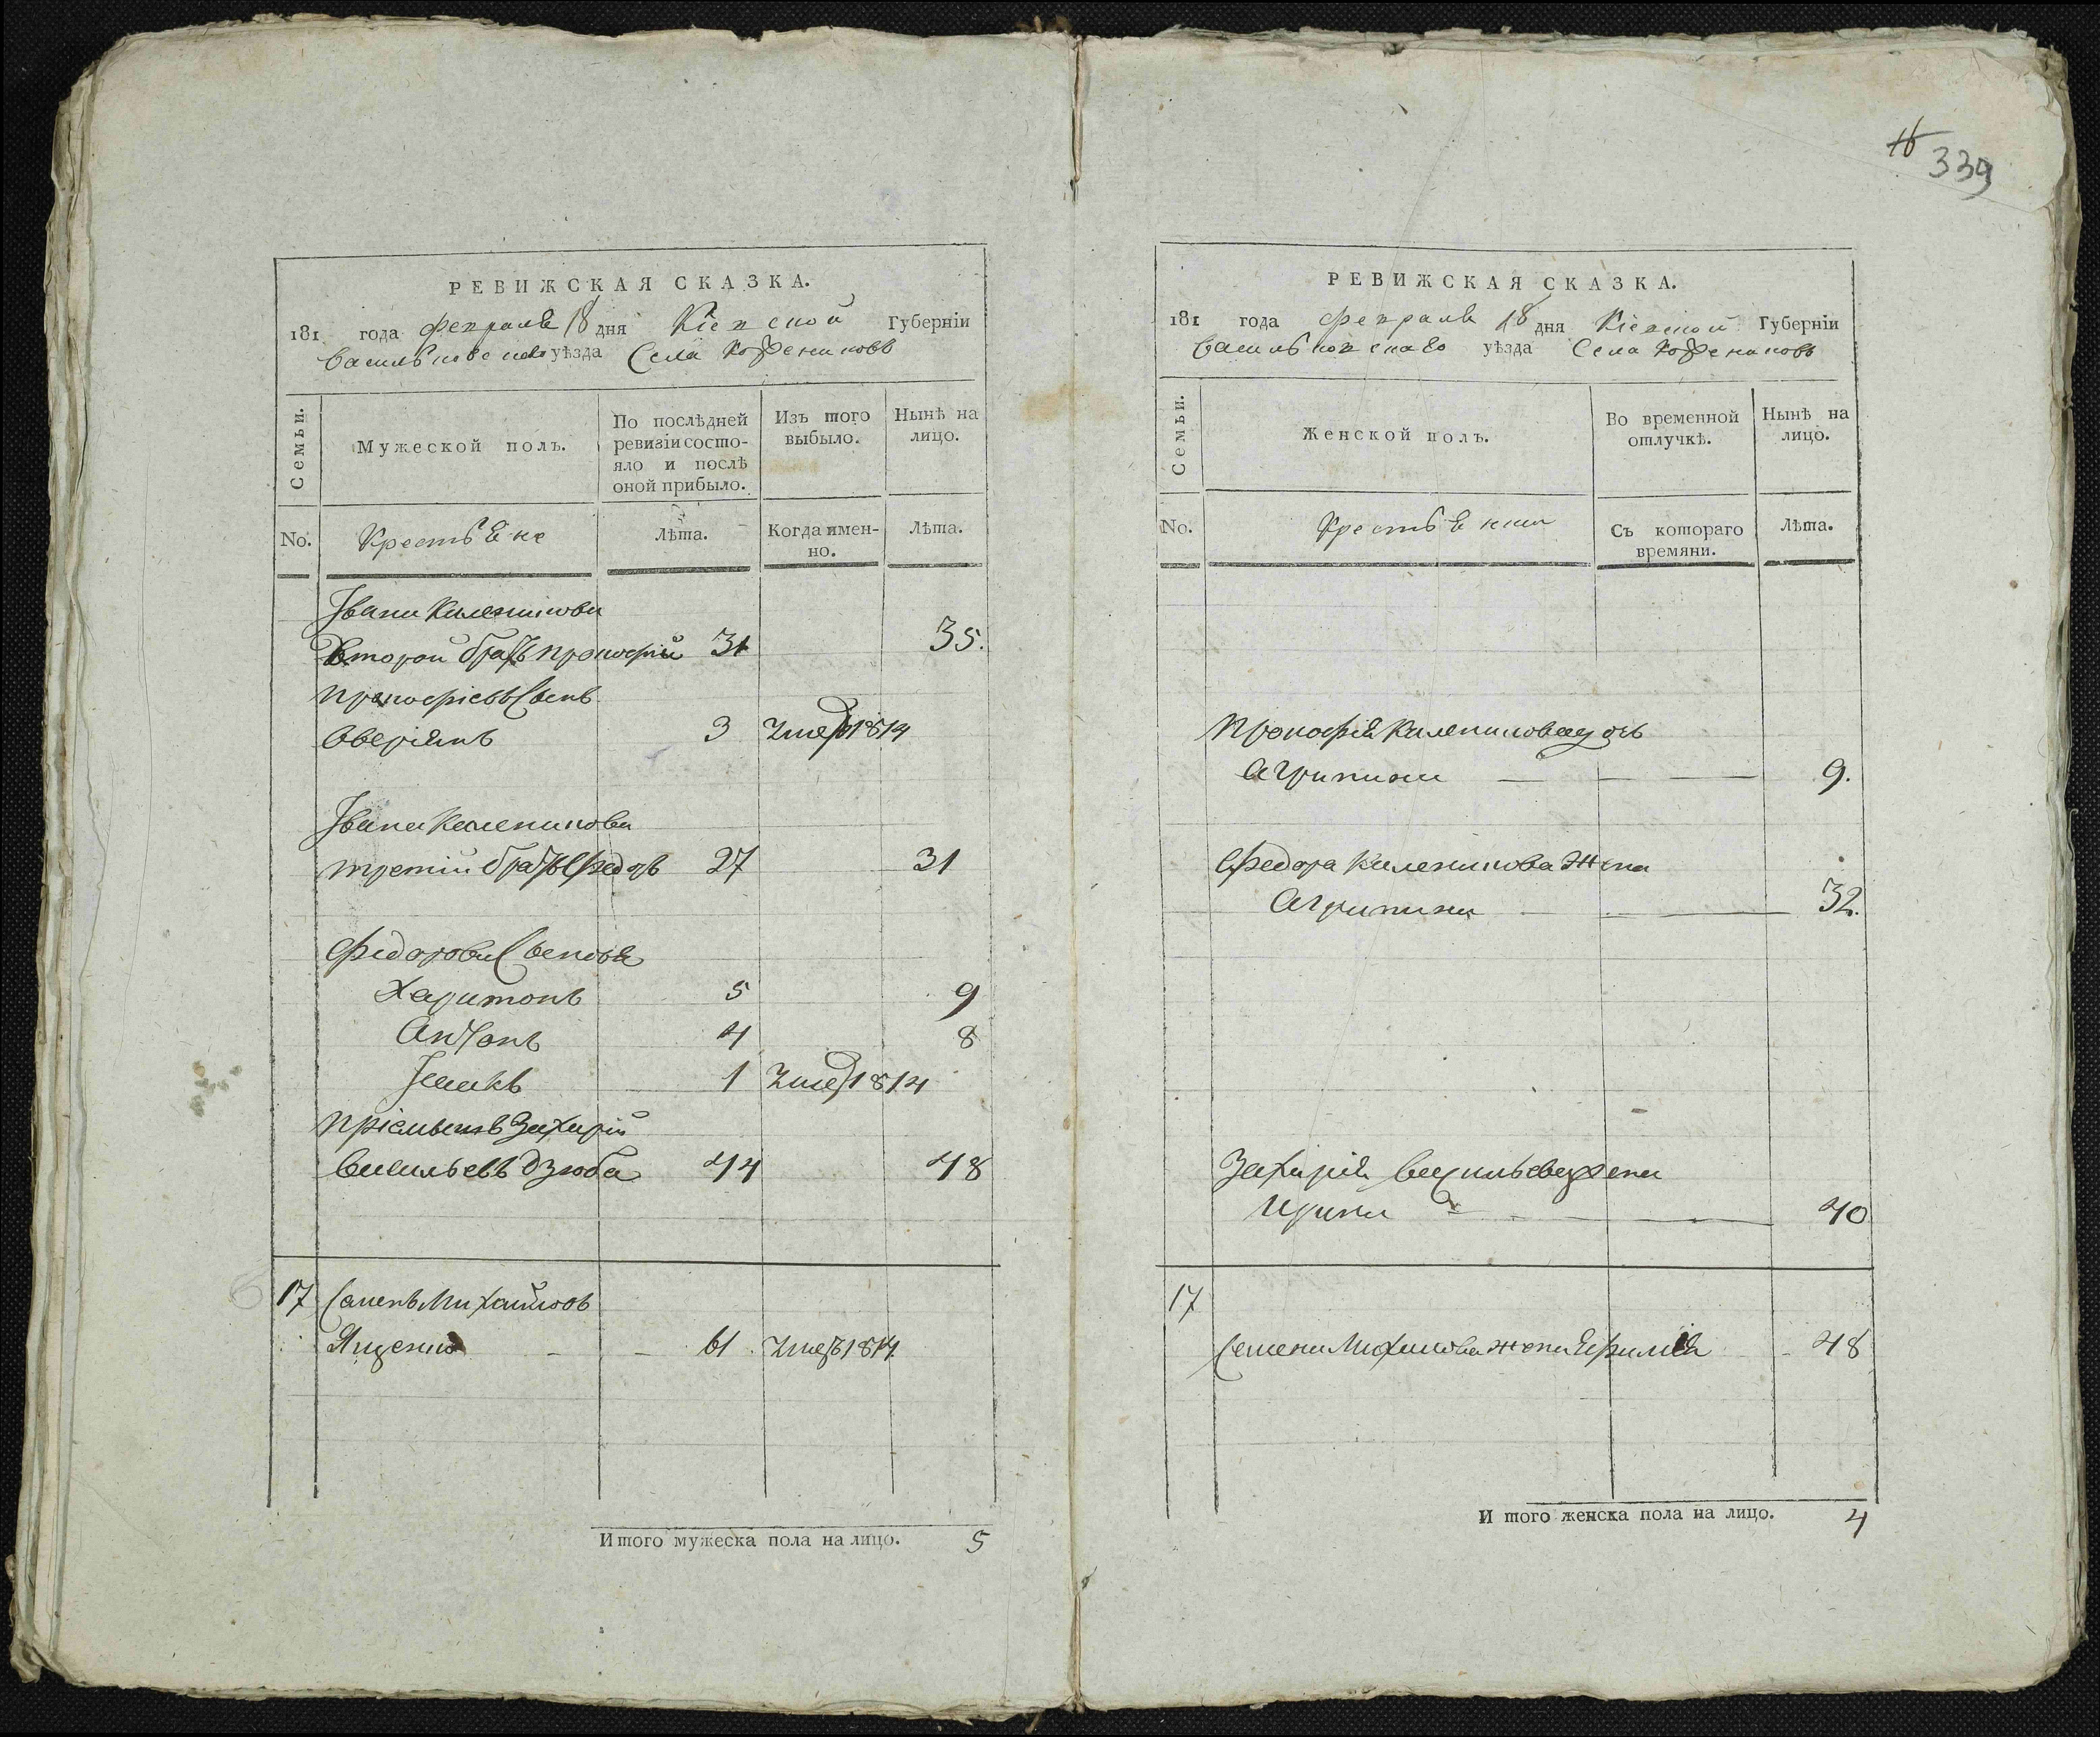 РЕВИЖСКАЯ СКАЗКА.
181 года февраля 18 дня Кіевской Губерніи
Васильковского уѣзда Села Кожениковъ
Семьи.
Мужеской полъ.
По послѣдней ревизіи состояло и послѣ оной прибыло.
Изъ того выбыло.
Нынѣ на лицо.
No.
Крестьяне
Лѣта.
Когда именно.
Лѣта.
Ивана Каленикова
Второй братъ прокофій 31 35.
прокофіевъ Сынъ
Аверіянъ 3 Умеръ 1814
Ивана Каленикова
третій братъ Федоръ 27 31
Федоровы Сыновья
Харитонъ 5 9
Антонъ 4 8
Исакъ 1 Умер 1814
пріемышъ Захарій
Васильевъ Дзюба 44 48
17 Семенъ Михайловъ
Яценко 61 Умеръ 1814
Итого мужеска пола на лицо. 5
16 339
РЕВИЖСКАЯ СКАЗКА.
181 года февраля 18 дня Кіевской Губерніи
Васильковского уѣзда Села Кожениковъ
Семьи.
Женской полъ.
Во временной отлучкѣ.
Нынѣ на лицо.
No.
Крестьянки
Съ котораго времяни.
Лѣта.
Прокофія Каленикова дочь
Агрипина 9.
Федора Каленикова Жена
Агрипина 32.
Захарія Васильева жена
Ирина 40
17
Семена Михайлова жена Ефимія 48
И того женска пола на лицо. 4